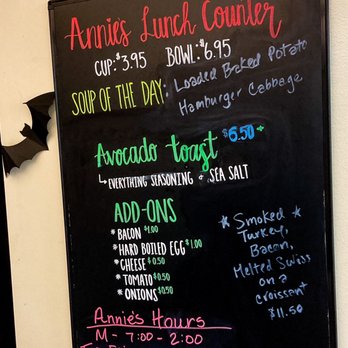 Annie's Lunch Counter
CUP: $3.95 BOWL: $6.95
SOUP OF THE DAY: Loaded Baked Potato
Hamburger Cabbage
Avocado toast $6.50+
EVERYTHING SEASONING & SEA SALT
ADD-ONS
* BACON $1.00
* HARD BOILED EGG $1.00
* CHEESE $0.50
* TOMATO $0.50
* ONIONS $0.50
* Smoked *
Turkey,
Bacon,
Melted Swiss
on a
croissant
$11.50
Annie's Hours
M - 7:00 - 2:00